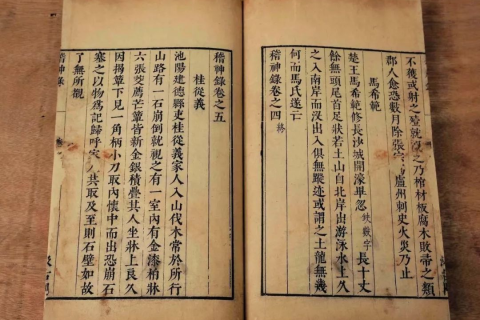 不獲或射之殪就視之乃棺材板腐木敗帚之類
郡人愈恐數月除張宗爲廬州刺史火災乃止
馬希範
楚王馬希範修長沙城開濠畢忽數字長十丈
餘無頭尾首足狀若土山自北岸出游泳水上久
之入南岸而没出入俱無蹤迹或謂之土龍無幾
何而馬氏遂亡
稽神錄卷之四終
稽神錄卷之五
桂從義
池陽建德縣吏桂從義家人入山伐木常於所行
山路有一石崩倒就視之有一室内有金漆柏牀
六張茭薦芒簟皆新金銀積疊其人坐牀上良久
因揭簟下見一角柄小刀取内懷中而出恐崩石
塞之以物爲記歸呼家人共取及至則石壁如故
了無所覩
稽神錄